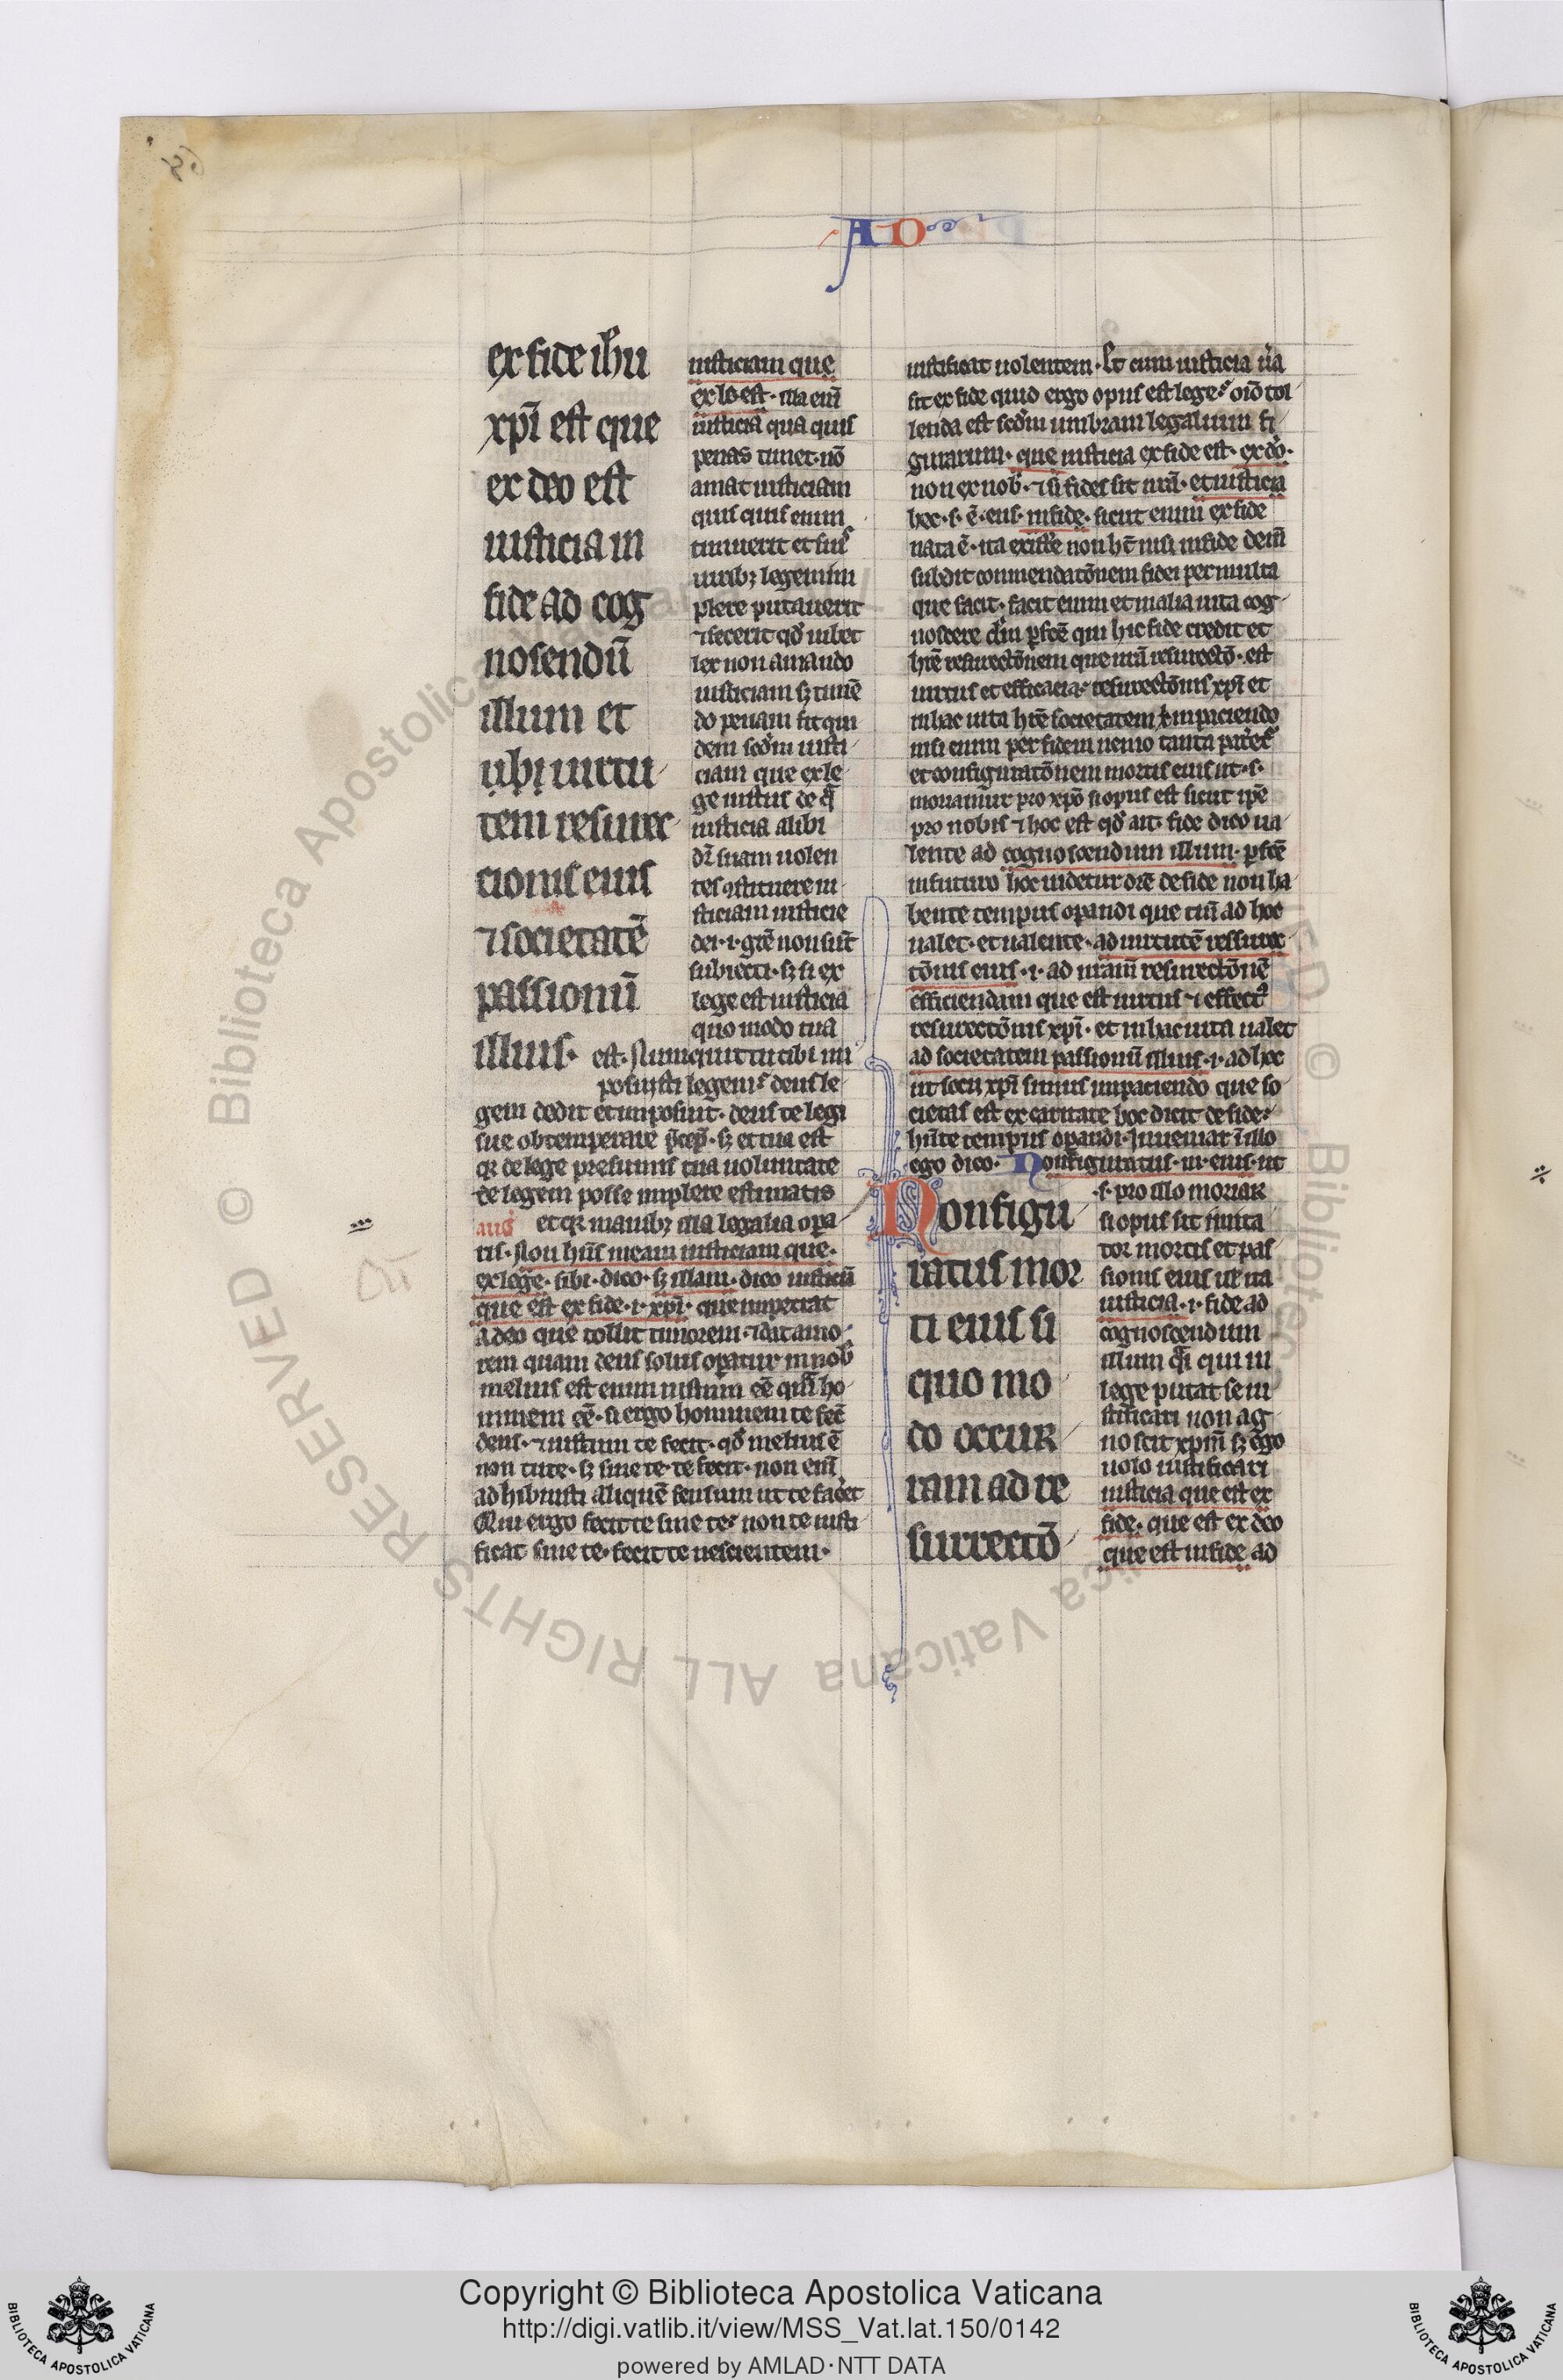 AD
ex fide ih̅u
xp̅i est que
ex deo est
iusticia in
fide ad cog
nosendu̅
illum et
ubi uirtu
tem resurrec
cionis eius
⁊ societate̅
passionu̅
illius.
iusticiam que
ex le est. illa eni̅
iusticia qua quis
penas timet. no̅
amat iusticiam
quis quis enim
timuerit et suis
uiribꝫ legem im
plere putauerit
⁊ fecerit qd̅ iubet
lex non amando
iusticiam sꝫ time̅
do penam fit qui
dem scd̅m iusti
ciam que ex le
ge iustus de q̅
iusticia alibi
dr̅ suam uolen
tes ꝯstituere iu
sticiam iusticie
dei .i. gr̅e non su̅t
subiecti. sꝫ si ex
lege est iusticia
quo modo tua
est. Numquit tu tibi im
posuisti legem deus le
gem dedit et imposuit. deus te legi
sue obtemperare p̅cep̅. sꝫ et tua est
qꝛ de lege presumis tua uoluntate
te legem posse implere estimatis
aug̅ et qꝛ manibꝫ illa legalia opa
ris. Non hn̅s meam iusticiam que.
ex lege. sibi. dico. sꝫ illam. dico iusticia̅
que est ex fide .i. xp̅i. que impetrat
a deo que tollit timorem ⁊ dat amo
rem quam deus solus opatur in nob̅
melius est enim iustum e̅e qua̅ ho
minem e̅e. si ergo hominem te fec̅
deus. ⁊ iustum te fecit. qd̅ melius e̅
non tu te. sꝫ sine te. te fecit. non eni̅
adhibuisti alique̅ sensum ut te facet
Qui ergo fecit te sine te. non te iusti
ficat sine te. fecit te nescientem.
iustificat uolentem. Et cum iusticia ur̅a
sit ex fide quid ergo opus est lege. oi̅o tol
lenda est scd̅m umbram legalium fi
gurarum. que iusticia ex fide est. ex do̅.
non ex nob̅. ⁊ si fides sit nr̅a. et iusticia
hec .s. e̅. eius. in fide. sicut enim ex fide
nata e̅. ita existe̅ non h̅t nisi in fide dein̅
subdit commendato̅nem fidei per multa
que facit. facit enim et in alia uita cog
noscere d̅m pfc̅e qui hic fide credit et
hr̅e resurrecto̅nem que nr̅a resurrecto̅. est
uirtus et efficacia. resurrecto̅nis xp̅i et
in hac uita hr̅e societatem xp̅i in paciendo
nisi enim per fidem nemo tanta patet̅
et configurato̅nem mortis eius ut .s.
moriamur pro xp̅o si opus est sicut ip̅e
pro nobis ⁊ hoc est qd̅ ait. fide dico ua
lente ad cognoscendum illum. pfc̅e
in futuro hoc uidetur dr̅e de fide non ha
bente tempus opandi que tn̅ ad hoc
ualet. et ualente. ad uirtute̅ ressurrec
to̅nis eius .i. ad nr̅am resurrecto̅ne̅
efficiendam que est uirtus ⁊ effectꝰ
resurrecto̅nis xp̅i. et in hac uita ualet
ad societatem passionu̅ illius .i. ad hoc
ut socii xp̅i simus in paciendo que so
cietas est ex caritate hoc dicit de fide.
hn̅te tempus opandi. Inueniar in illo
ego dico. Configuratus. m. eius. ut
Configu
ratus mor
ti eius si
quo mo
do occur
ram ad re
surrecto̅
.s. pro illo moriar
si opus sit imita
tor mortis et pas
sionis eius
iusticia .i. fide ad
cognoscendum
illum q̅i qui in
lege putat se iu
stificari non ag
noscit xpm̅ sꝫ ego
uolo iustificari
iusticia que est ex
fide. que est ex deo
que est in fide ad
Copyright © Biblioteca Apostolica Vaticana
http://digi.vatlib.it/view/MSS_Vat.lat.150/0142
powered by AMLAD·NTT DATA